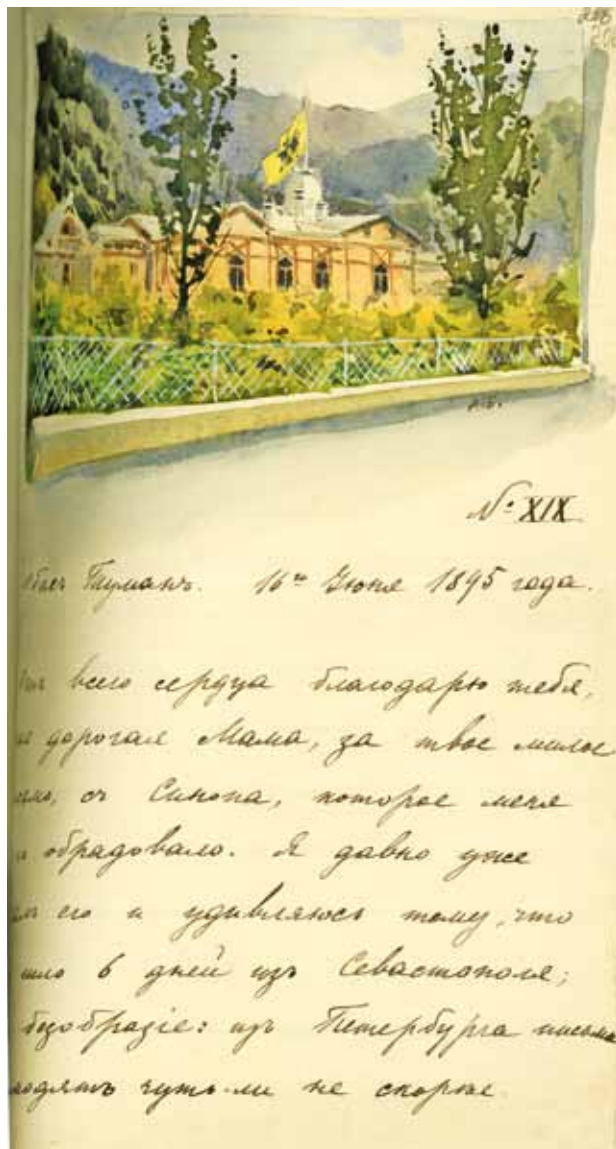 № XIX
Туманъ. 16го Июня 1895 года.
всего сердца благодарю тебя,
дорогая Мама, за твое милое
съ Синопа, которое меня
обрадовало. Я давно уже
его и удивляюсь тому, что
шло 6 дней изъ Севастополя;
безобразіе: изъ Петербурга письма
ходятъ чуть-ли не скорѣе